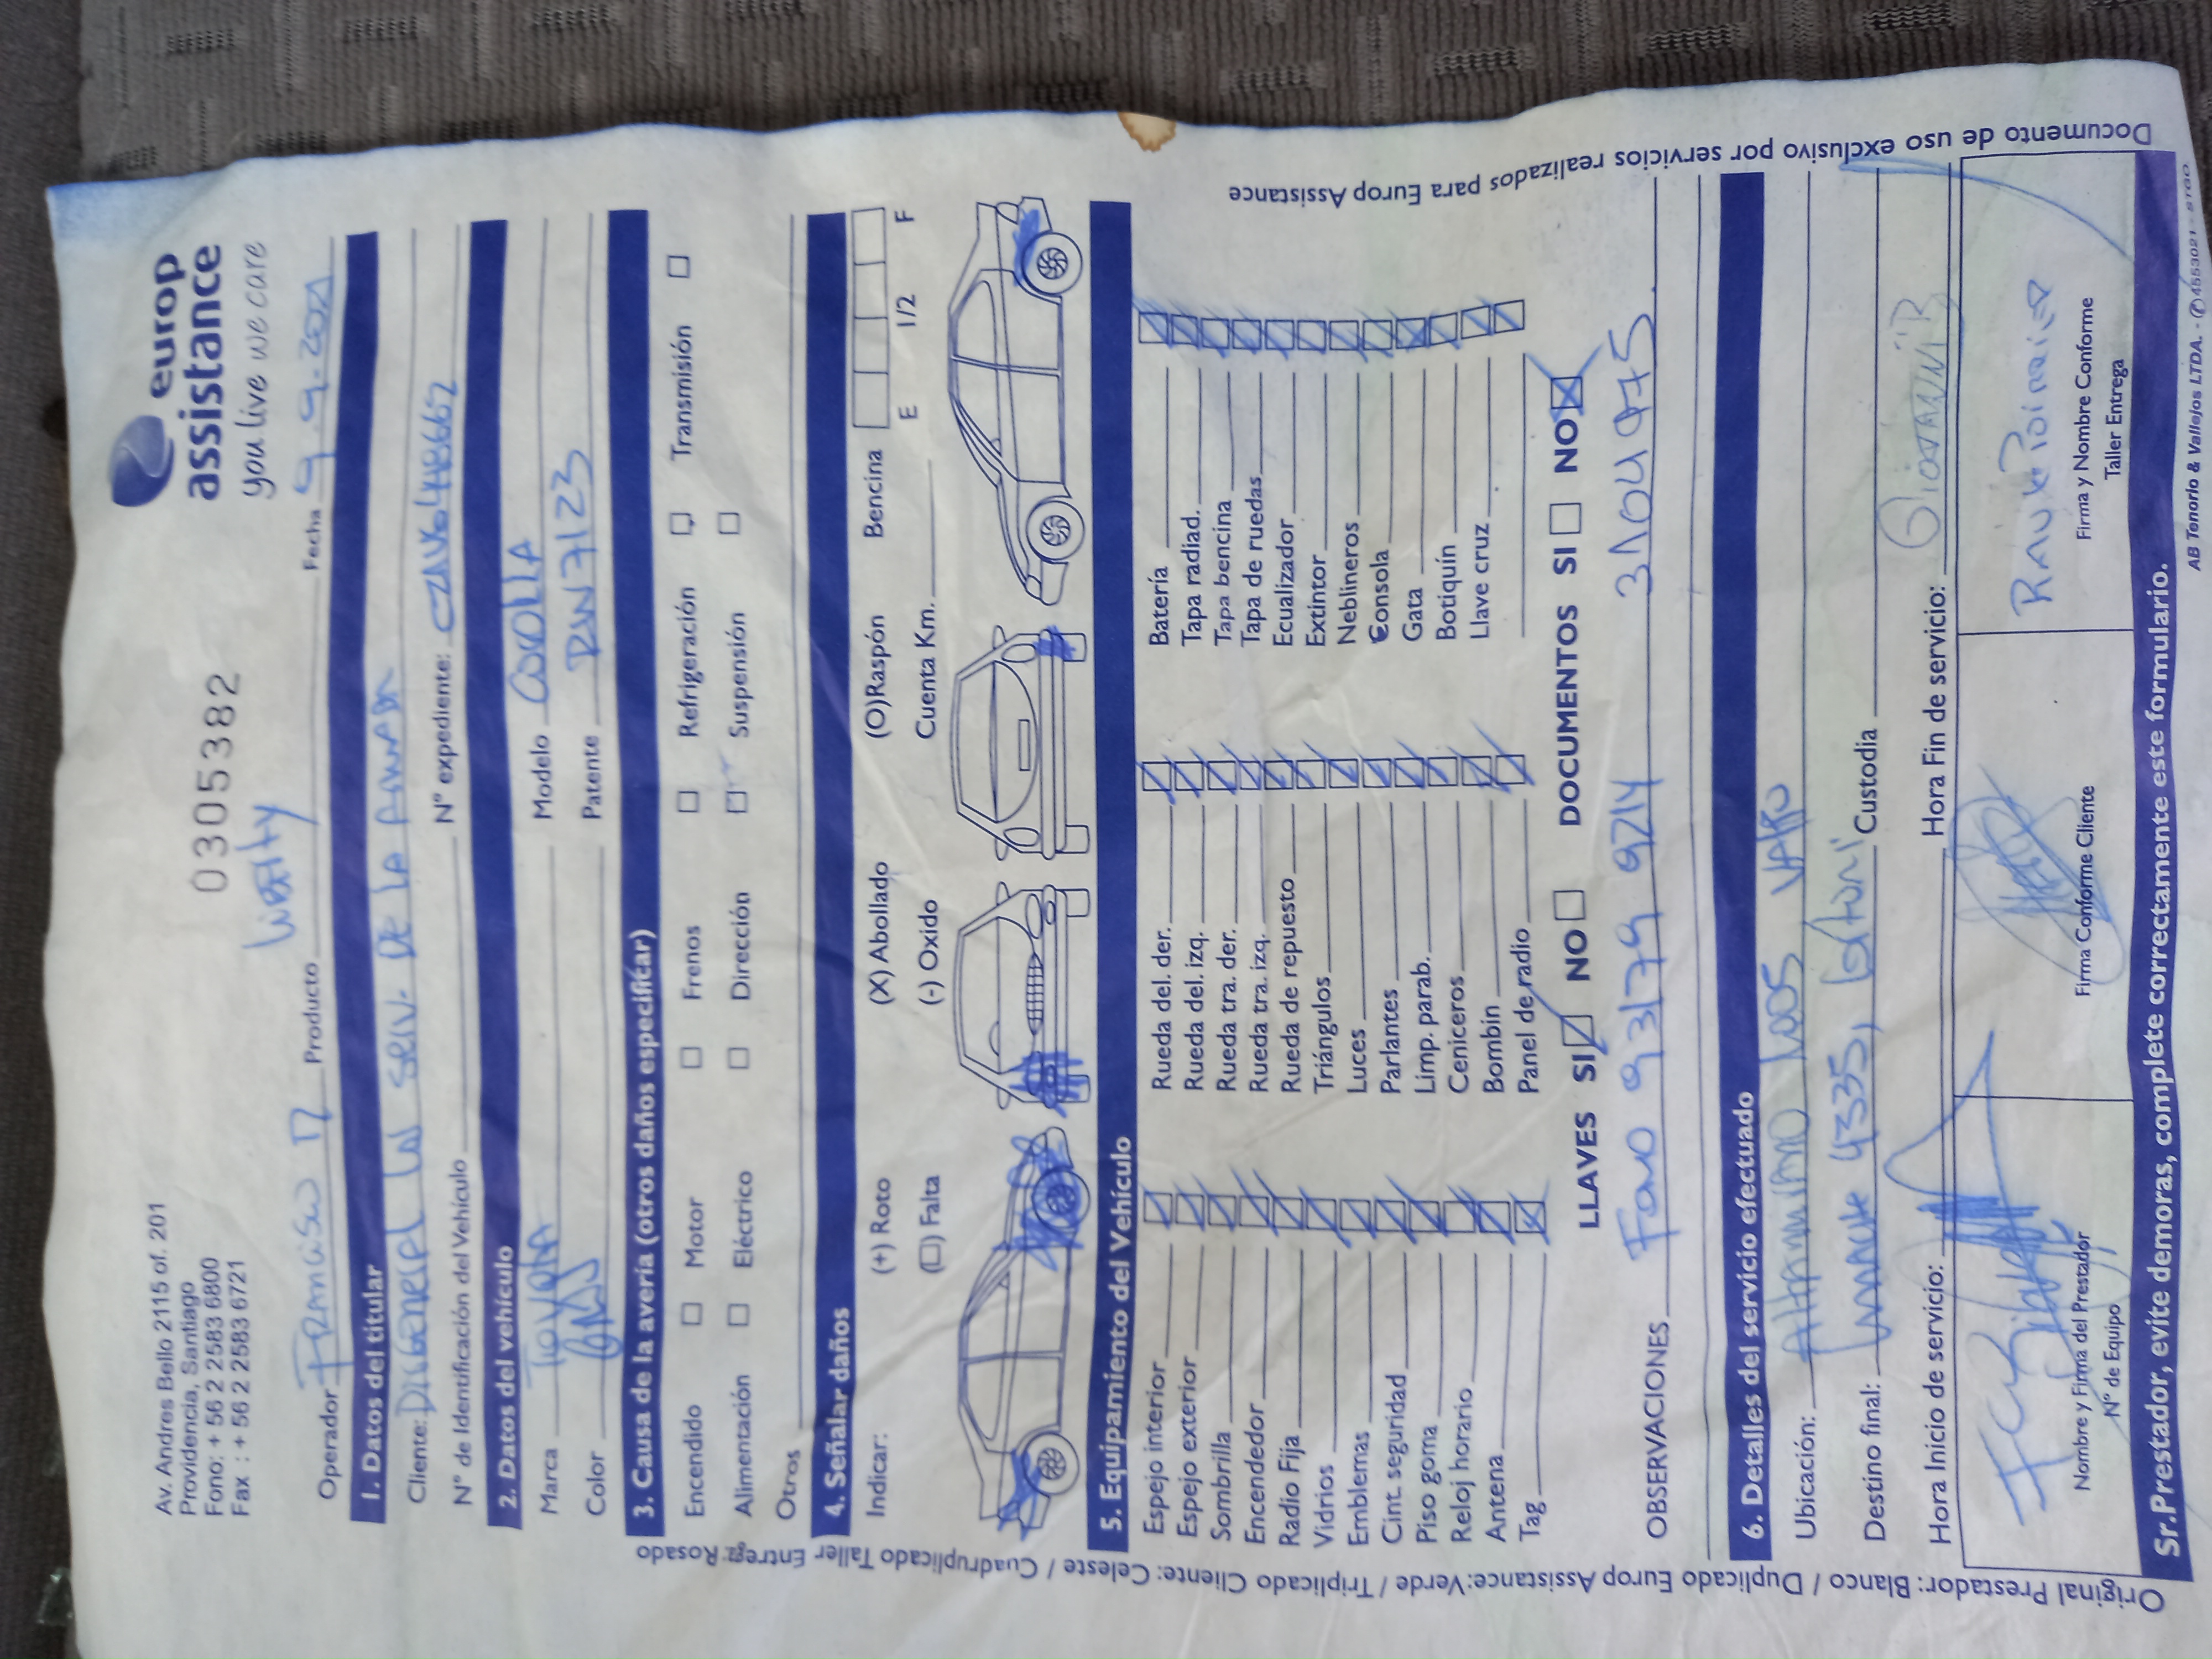 europ
assistance
you live we care
Av. Andres Bello 2115 of. 201
Providencia, Santiago
Fono: + 56 2 2583 6800
Fax : + 56 2 2583 6721
0305382
Operador Francisco Producto Fecha 9.9.2021
1. Datos del titular
Cliente: Serv. De LA
N° de Identificación del Vehículo N° expediente:
2. Datos del vehículo
Marca TOYOTA Modelo
Color Patente
3. Causa de la avería (otros daños especificar)
Encendido Motor Frenos Refrigeración Transmisión
Alimentación Eléctrico Dirección Suspensión
Otros
4. Señalar daños
Indicar: (+) Roto (X) Abollado (O)Raspón Bencina
(☐) Falta (-) Oxido Cuenta Km. E 1/2 F
5. Equipamiento del Vehículo
Espejo interior Rueda del. der. Batería
Espejo exterior Rueda del. izq. Tapa radiad.
Sombrilla Rueda tra. der. Tapa bencina
Encendedor Rueda tra. izq. Tapa de ruedas
Radio Fija Rueda de repuesto Ecualizador
Vidrios Triángulos Extintor
Emblemas Luces Neblineros
Cint. seguridad Parlantes Consola
Piso goma Limp. parab. Gata
Reloj horario Ceniceros Botiquín
Antena Bombin Llave cruz
Tag Panel de radio
LLAVES SI NO DOCUMENTOS SI NO
OBSERVACIONES Fono 9 3179 9214
6. Detalles del servicio efectuado
Ubicación:
Destino final: 4335, Custodia
Hora Inicio de servicio: Hora Fin de servicio:
Nombre y Firma del Prestador Firma Conforme Cliente Firma y Nombre Conforme
N° de Equipo Taller Entrega
Sr.Prestador, evite demoras, complete correctamente este formulario.
AB Tenorio & Vallejos LTDA.
Original Prestador: Blanco / Duplicado Europ Assistance: Verde / Triplicado Cliente: Celeste / Cuadruplicado Taller Entrega: Rosado
Documento de uso exclusivo por servicios realizados para Europ Assistance